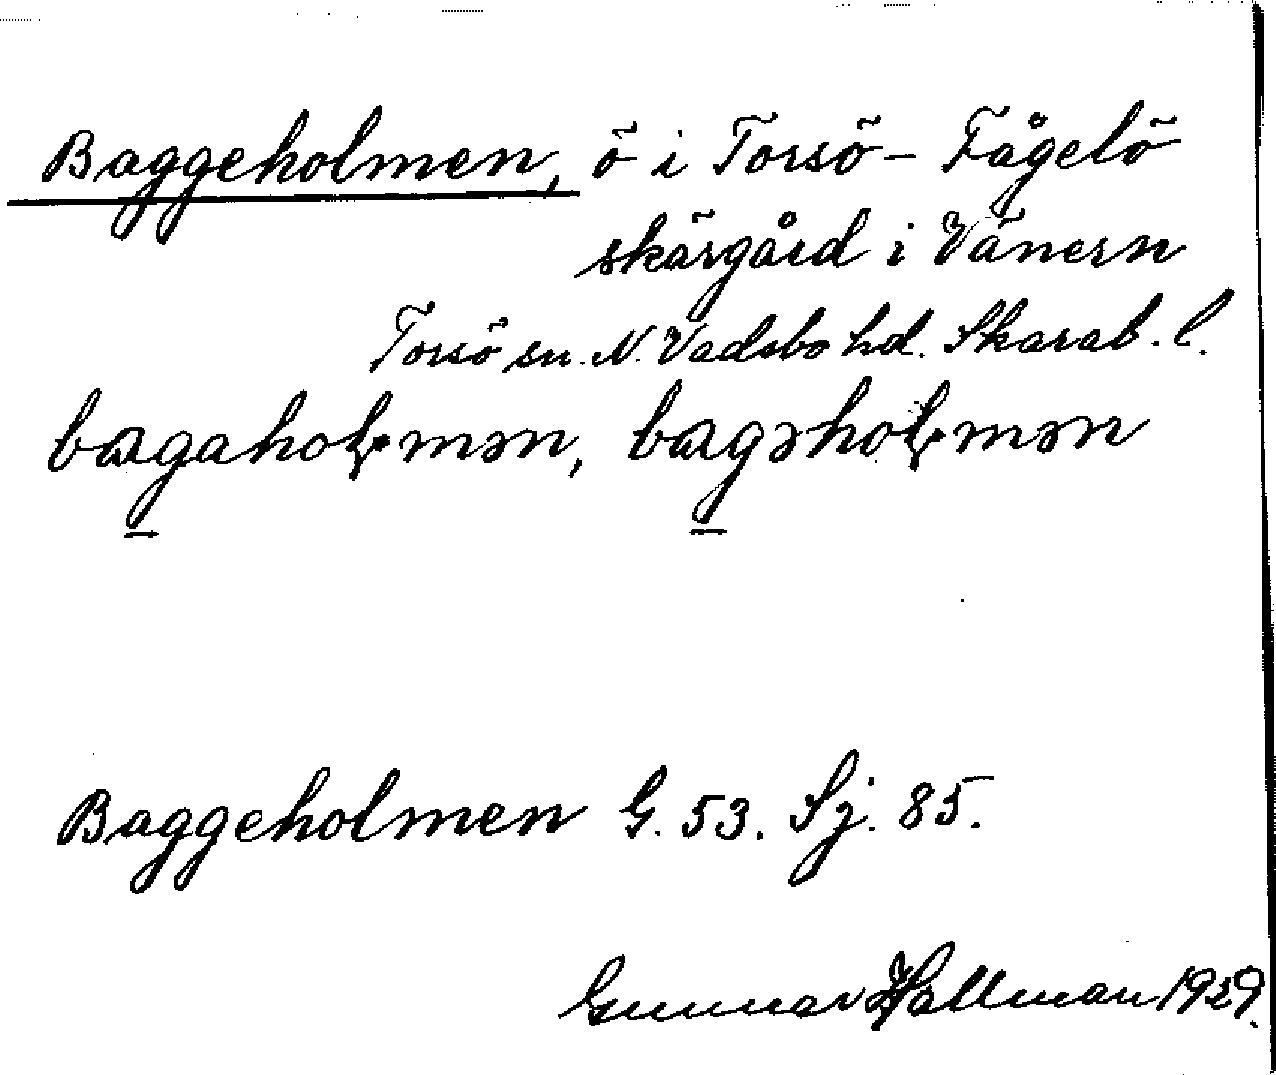 Baggeholmen, ö i Torsö - Fågelö
skärgård i Vänern
Torsö sn. N. Vadsbo hd. Skarab. l.
bagaholmən, bagəholmən
Baggeholmen G. 53. Sj. 85.
Gunnar Hallman 1929.